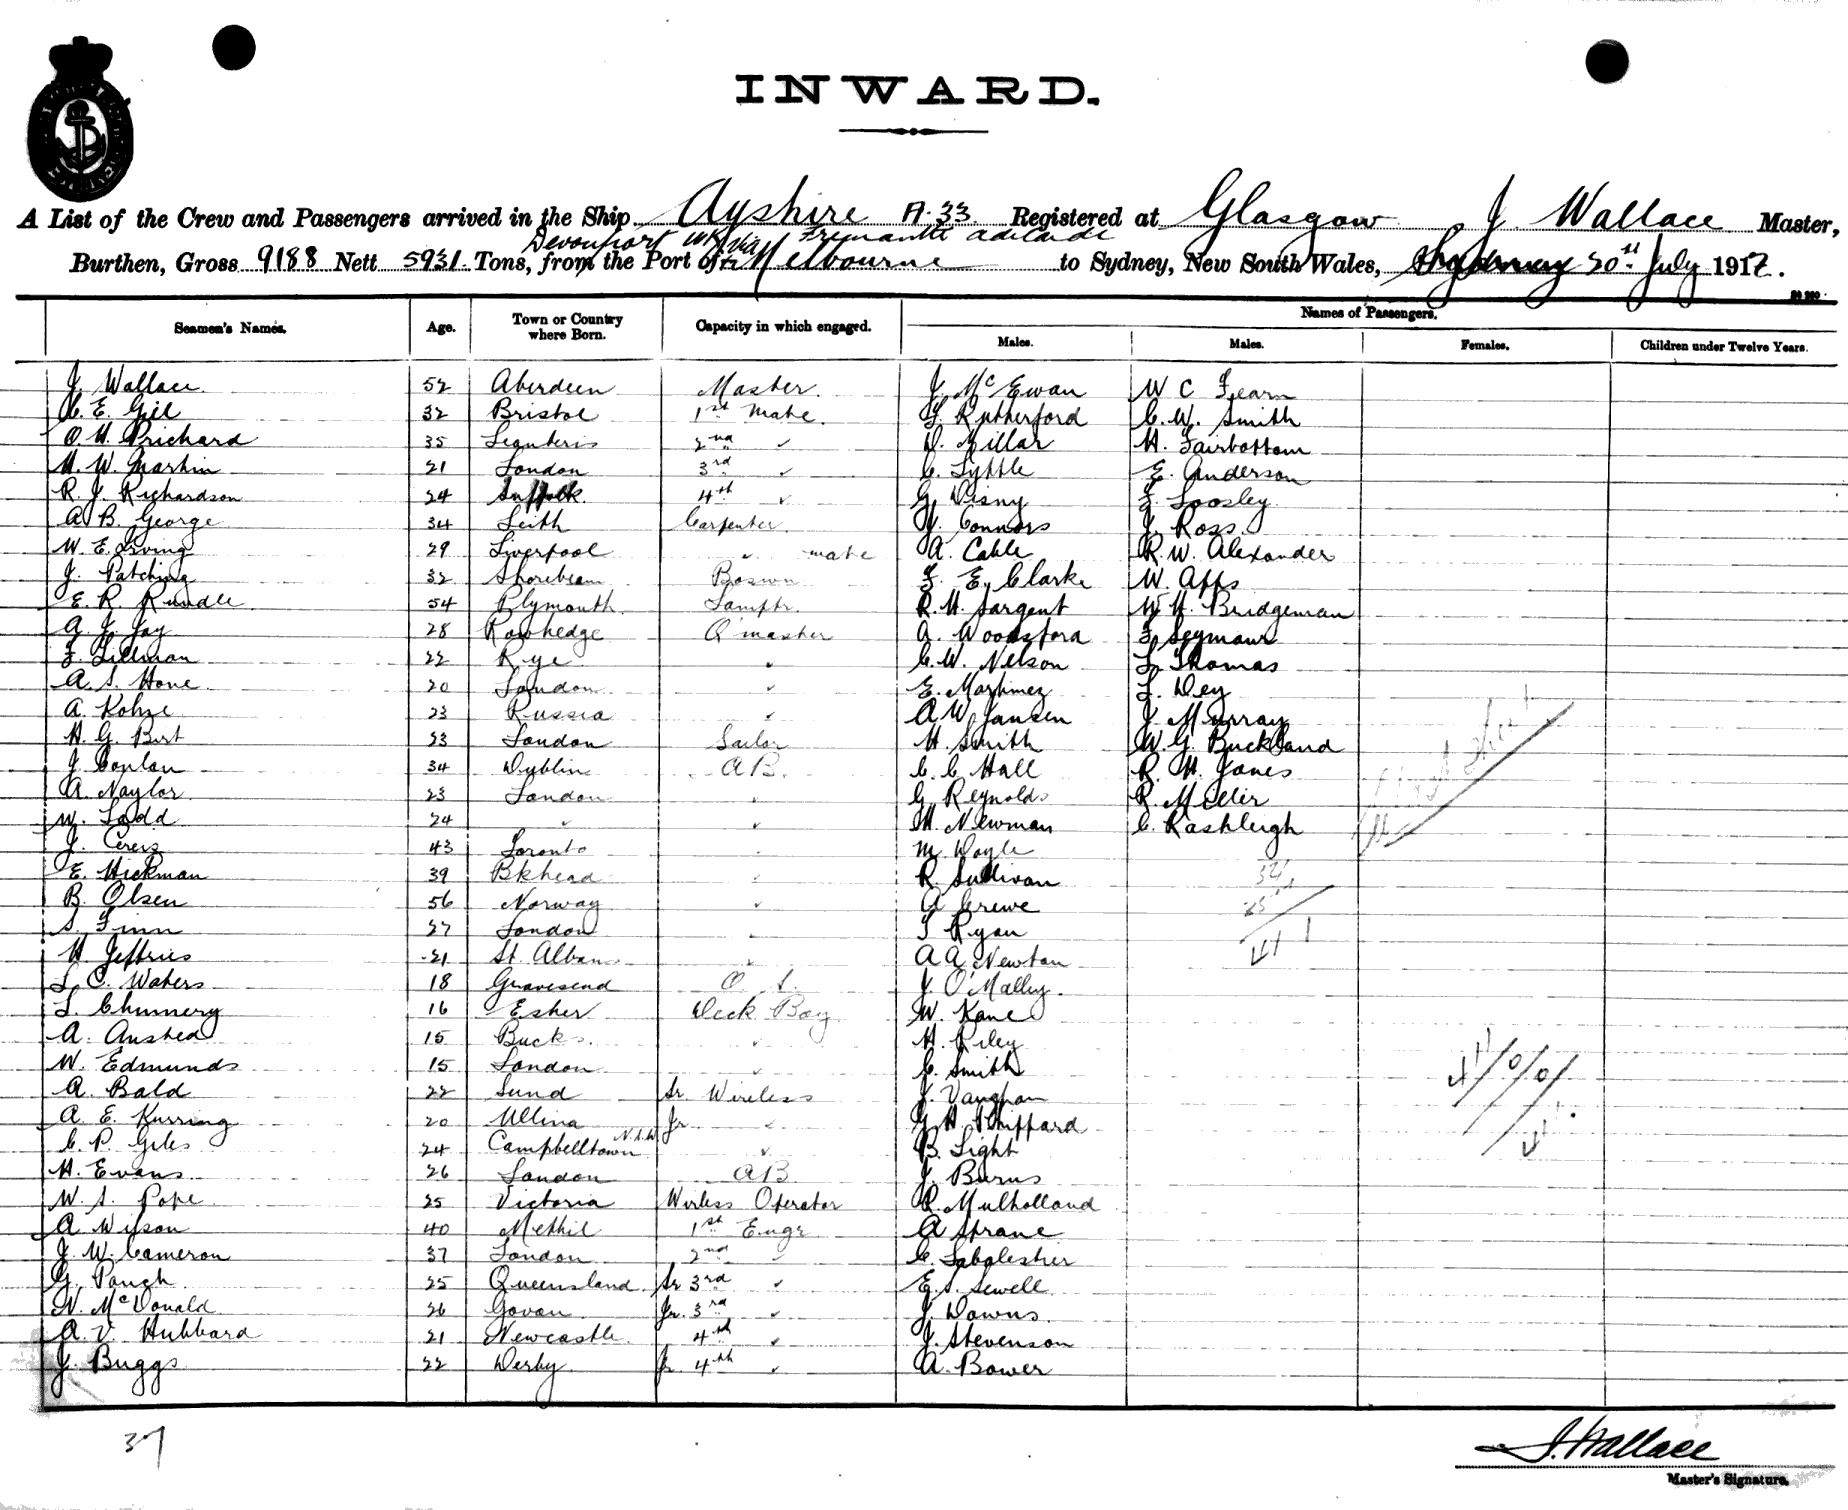 INWARD.
A List of the Crew and Passengers arrived in the Ship Ayshire A.33 Registered at Glasgow J Wallace Master,
Devonport Fremantle Adelaide
Burthen, Gross 9188 Nett 5931 Tons, from the Port of Melbourne to Sydney, New South Wales, 20th July 1917.
Names of Passengers.
Seamen's Names. Age. Town or Country where Born. Capacity in which engaged. Males. Males. Females. Children under Twelve Years.
J. Wallace 52 Aberdeen Master. J. McEwan W C Fearn
C. E. Gill 32 Bristol 1st Mate J. Rutherford C. W. Smith
O. H. Prichard 35 2nd ✓ D. Millar H. Fairbottom
H. W. Martin 21 London 3rd ✓ C. Lyttle E. Anderson
R. J. Richardson 24 Suffolk 4th ✓ G. Visny F. Loosley
A. B. George 34 Leith Carpenter J. Connors J. Ross
W. E. Irving 29 Liverpool ✓ mate A. Cable R. W. Alexander
J. Patching 32 Shoreham Boswn F. E. Clarke W. Apps
E. R. Rundle 54 Plymouth Lamptr. R. H. Sargent W. H. Bridgeman
A. J. Jay 28 Rowhedge Q'master A. Woodsford F. Seymour
F. Tillman 22 Rye ✓ C. W. Nelson L. Thomas
A. S. Hone 20 London ✓ E. Martinez F. Dey
A. Kohze 23 Russia ✓ A. W. Jansen J. Murray
H. G. Birt 23 London Sailor H. Smith W. G. Buckland
J. Conlan 34 Dublin A B. C. C Hall R. H. Jones
A. Naylor 23 London ✓ G. Reynolds R. Meller
W. Todd 24 ✓ ✓ H. Newman C. Rashleigh
J. 43 Toronto ✓ M Doyle
E. Hickman 39 Bkhead ✓ R Sullivan
B. Olsen 56 Norway ✓ A Crewe
S. Finn 27 London ✓ T Ryan
H. Jeffries 21 St. Albans ✓ A A Newton
L. C. Waters 18 Gravesend O. S. J. O'Malley.
L. Chummery 16 Esher Deck Boy W. Kane
A. Anstead 15 Bucks. ✓ H. Riley
W. Edmunds 15 London ✓ C. Smith
A. Bald 22 Sund Sr. Wireless J. Vaughan
A. E. Kurring 20 Ullina Jr. ✓ G. H. Shippard
C. P. Giles 24 Campbelltown N.S.W ✓ B. Light
H. Evans 26 London A B J. Burns
W. S. Pope 25 Victoria Wirless Operator R. Mulholland
A Wilson 40 Methil 1st Engr A Sprane
J. W. Cameron 37 London 2nd ✓ C.
G. Pough 25 Queensland Sr 3rd ✓ E. S. Sewell
N. McDonald 26 Govan Jr. 3rd ✓ J. Downs.
A. V. Hubbard 21 Newcastle 4th ✓ J. Stevenson
J. Buggs 22 Derby Jr 4th ✓ A. Bower
37
J. Wallace
Master's Signature.